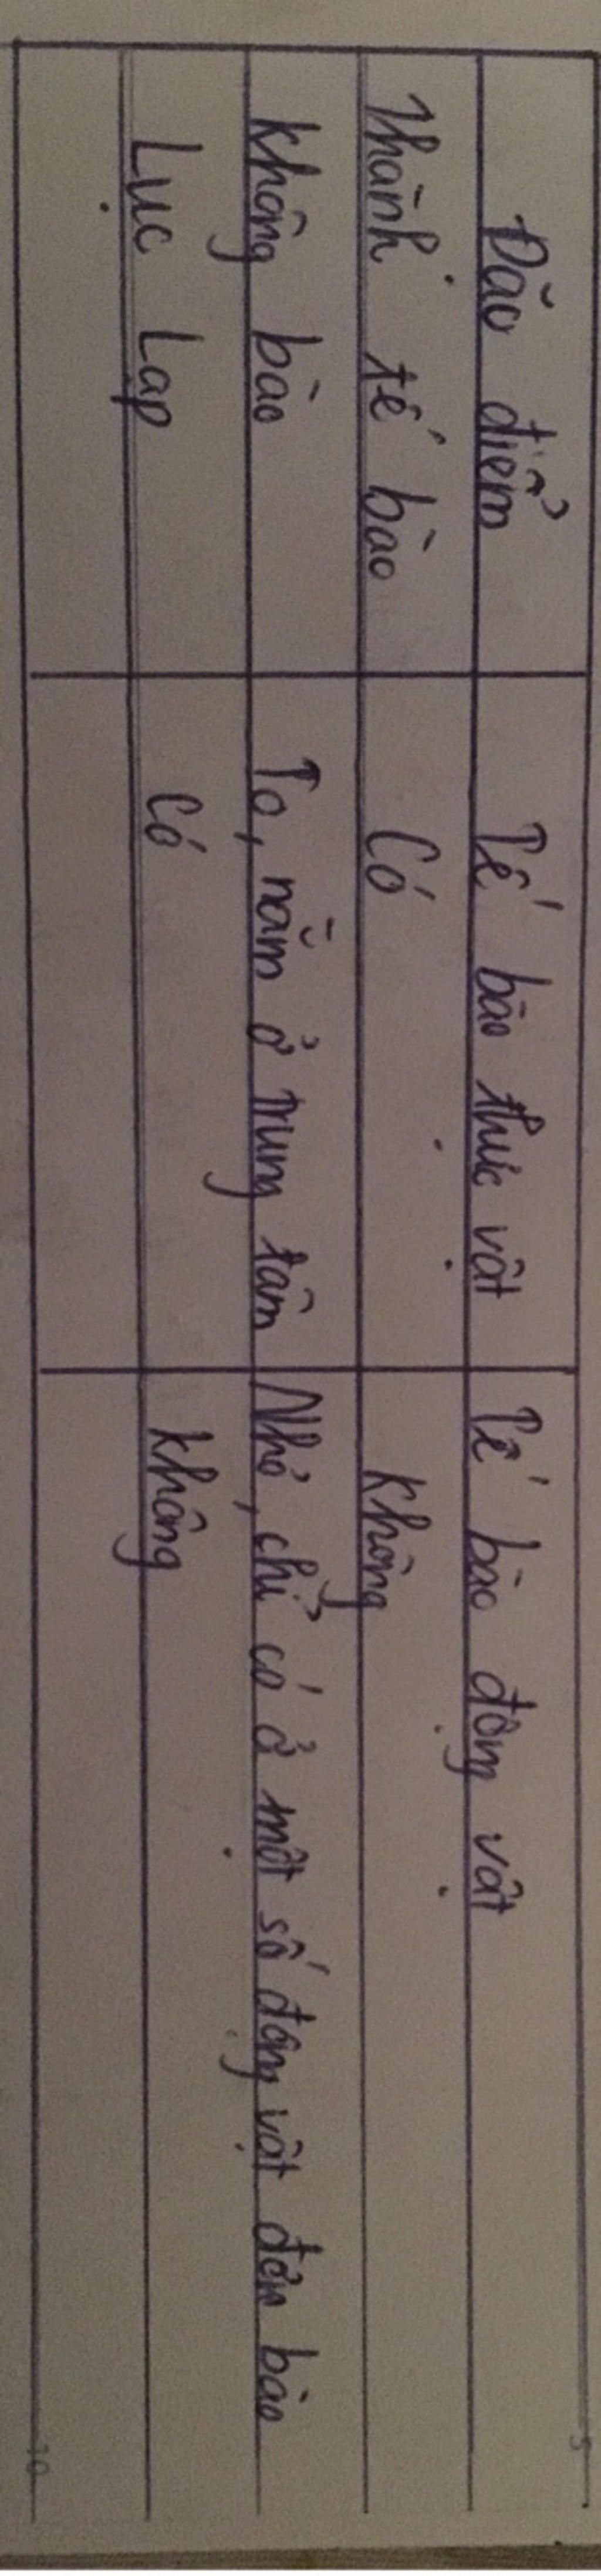 Đăc điểm Tế bào thực vật Tế bào động vật
Thành tế bào Có không
không bào To, nằm ở trung tâm Nhỏ, chỉ có ở một số động vật đơn bào
Lục Lạp Có không
5
10